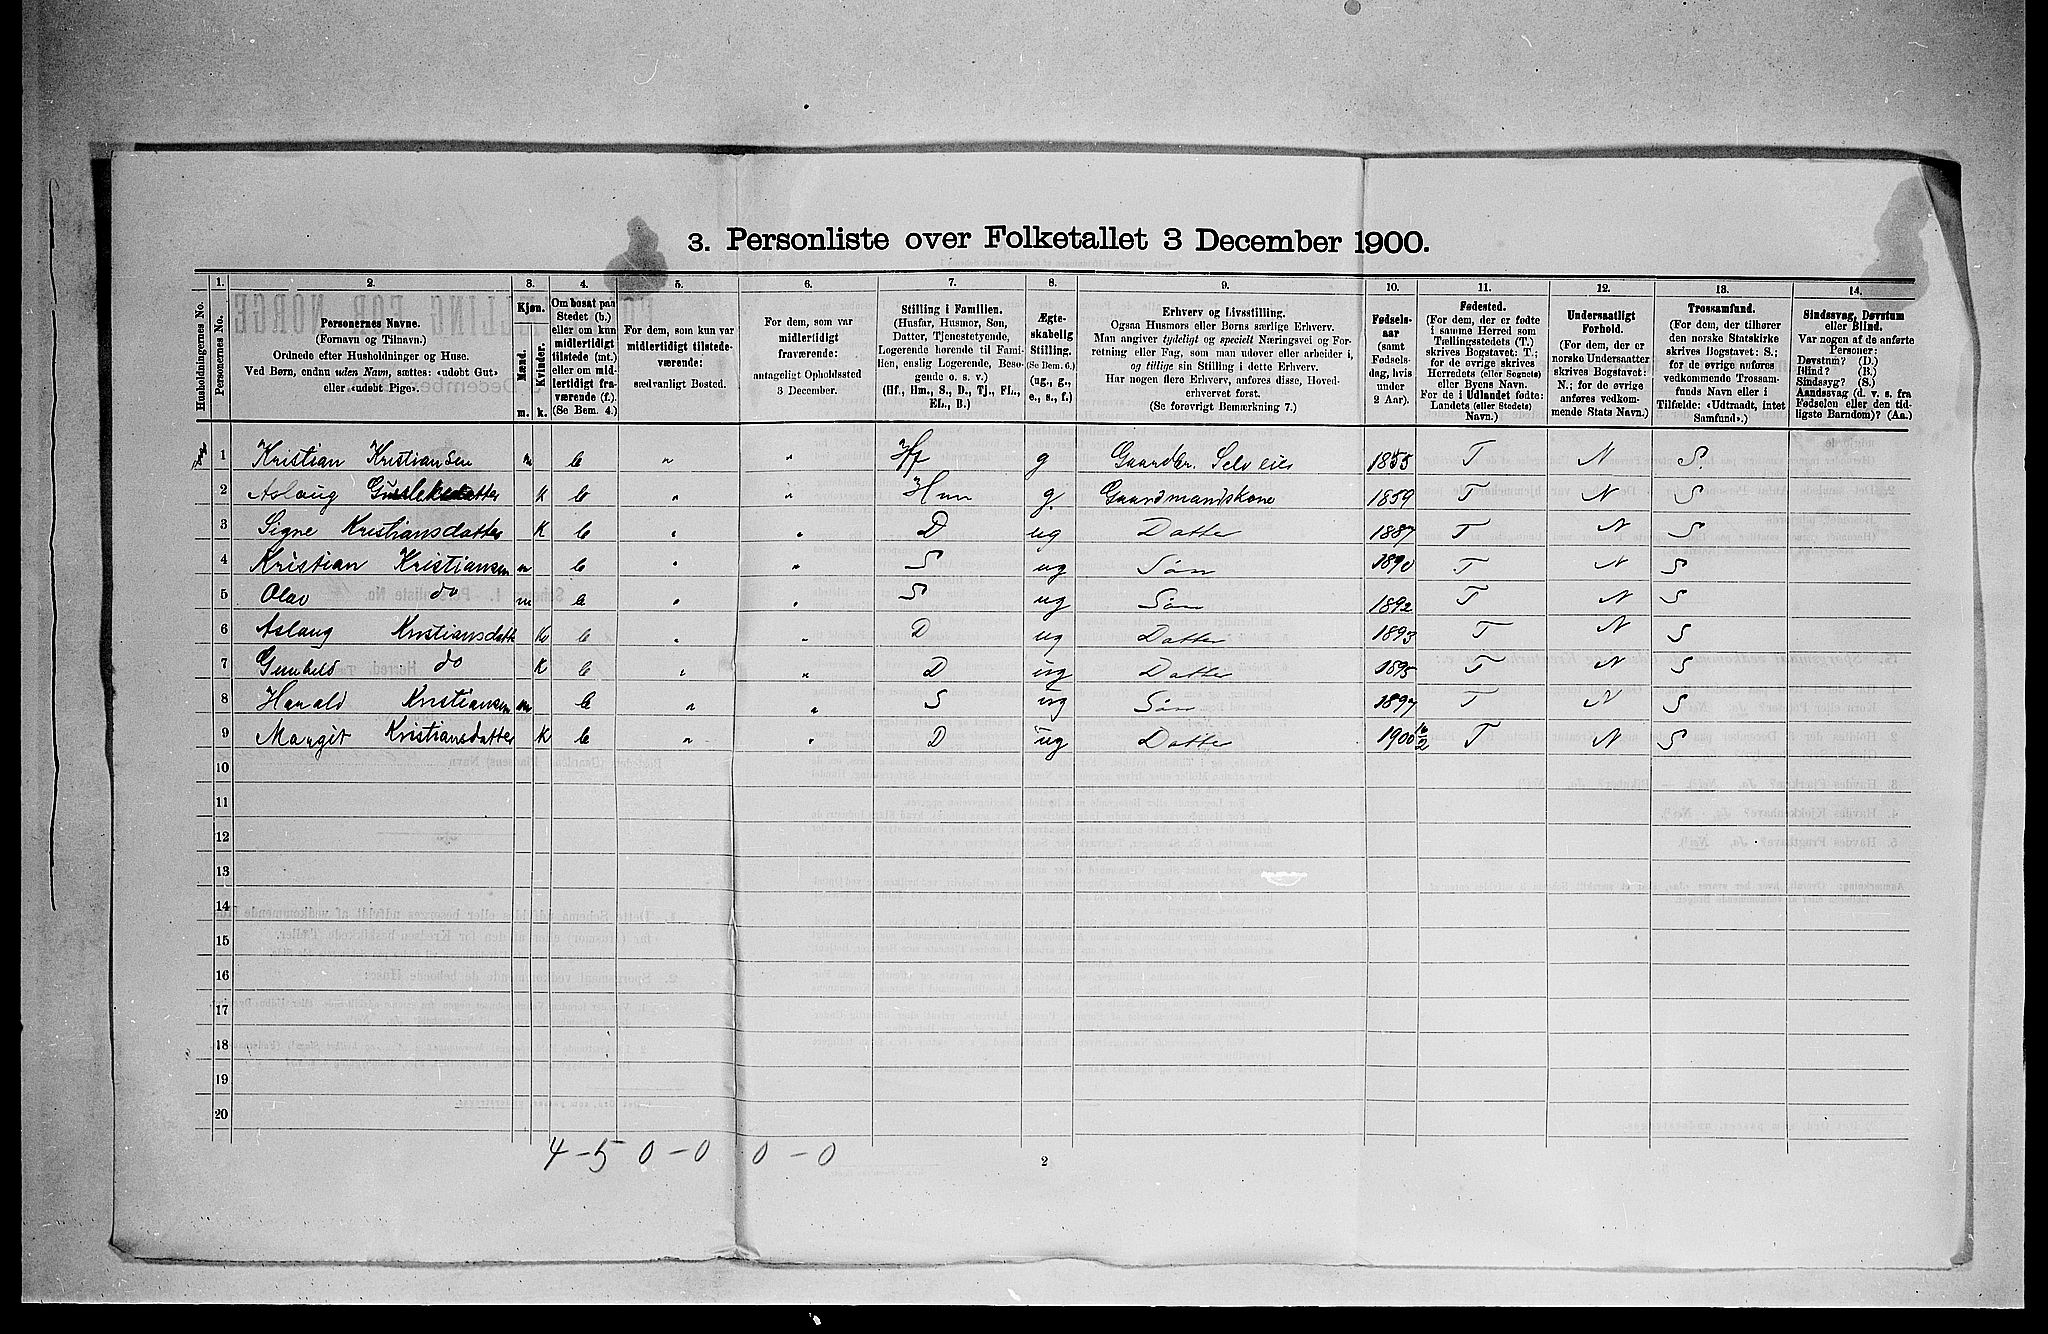 3. Personliste over Folketallet 3 December 1900.
1. 2. 3. 4. 5. 6. 7. 8. 9. 10. 11. 12. 13. 14.
Husholdningernes No.
Personernes No.
Personernes Navne.
(Fornavn og Tilnavn.)
Ordnede efter Husholdninger og Huse.
Ved Børn, endnu uden Navn, sættes: «udøbt Gut»
eller «udøbt Pige».
Kjøn.
Mænd.
Kvinder.
m. k.
Om bosat paa
Stedet (b.)
eller om kun
midlertidigt
tilstede (mt.)
eller om mid-
lertidigt fra-
værende (f.)
(Se Bem. 4.)
For dem, som kun var
midlertidigt tilstede-
værende:
sædvanligt Bosted.
For dem, som var
midlertidigt
fraværende:
antageligt Opholdssted
3 December.
Stilling i Familien.
(Husfar, Husmor, Søn,
Datter, Tjenestetyende,
Logerende hørende til Fami-
lien, enslig Logerende, Besø-
gende o. s. v.)
(Hf., Hm., S., D., Tj., FL.,
EL., B.)
Ægte-
skabelig
Stilling.
(Se Bem. 6.)
(ug., g.,
e., s., f.)
Erhverv og Livsstilling.
Ogsaa Husmors eller Børns særlige Erhverv.
Man angiver tydeligt og specielt Næringsvei og For-
retning eller Fag, som man udøver eller arbeider i,
og tillige sin Stilling i dette Erhverv.
Har nogen flere Erhverv, anføres disse, Hoved-
erhvervet først.
(Se forøvrigt Bemærkning 7.)
Fødsels-
aar
(samt
Fødsels-
dag, hvis
under
2 Aar).
Fødested.
(For dem, der er fødte
i samme Herred som
Tællingsstedets (T.)
skrives Bogstavet: T.;
for de øvrige skrives
Herredets (eller Sognets)
eller Byens Navn.
For de i Udlandet fødte:
Landets (eller Stedets)
Navn.)
Undersaatligt
Forhold.
(For dem, der er
norske Undersaatter
skrives Bogstavet:
N.; for de øvrige
anføres vedkom-
mende Stats Navn.)
Trossamfund.
(For dem, der tilhører
den norske Statskirke
skrives Bogstavet: S.;
for de øvrige anføres
vedkommende Trossam-
funds Navn eller i
Tilfælde: «Udtraadt, intet
Samfund».)
Sindssvag, Døvstum
eller Blind.
Var nogen af de anførte
Personer:
Døvstum? (D.)
Blind? (B.)
Sindssyg? (S.)
Aandssvag (d. v. s. fra
Fødselen eller den tid-
ligste Barndom)? (Aa.)
1 Kristian Kristiansen m b " " Hf g Gaardbr. Selveier 1855 T N S.
2 Aslaug k b " " Hm g. Gaardmandskone 1859 T N S
3 Signe Kristiansdatter k b " " D ug Datter 1887 T N S
4 Kristian Kristiansen m b " " S ug Søn 1890 T N S
5 Olav do m b " " S ug Søn 1892 T N S
6 Aslaug Kristiansdatt k b " " D ug Datter 1893 T N S
7 Gunhild do k b " " D ug Datter 1895 T N S
8 Harald Kristiansen m b " " S ug Søn 1897 T N S
9 Margit Kristiansdatter k b " " D ug Datter 1900 T N S
10
11
12
13
14
15
16
17
18
19
20
4 - 5 0 - 0 0 - 0
2